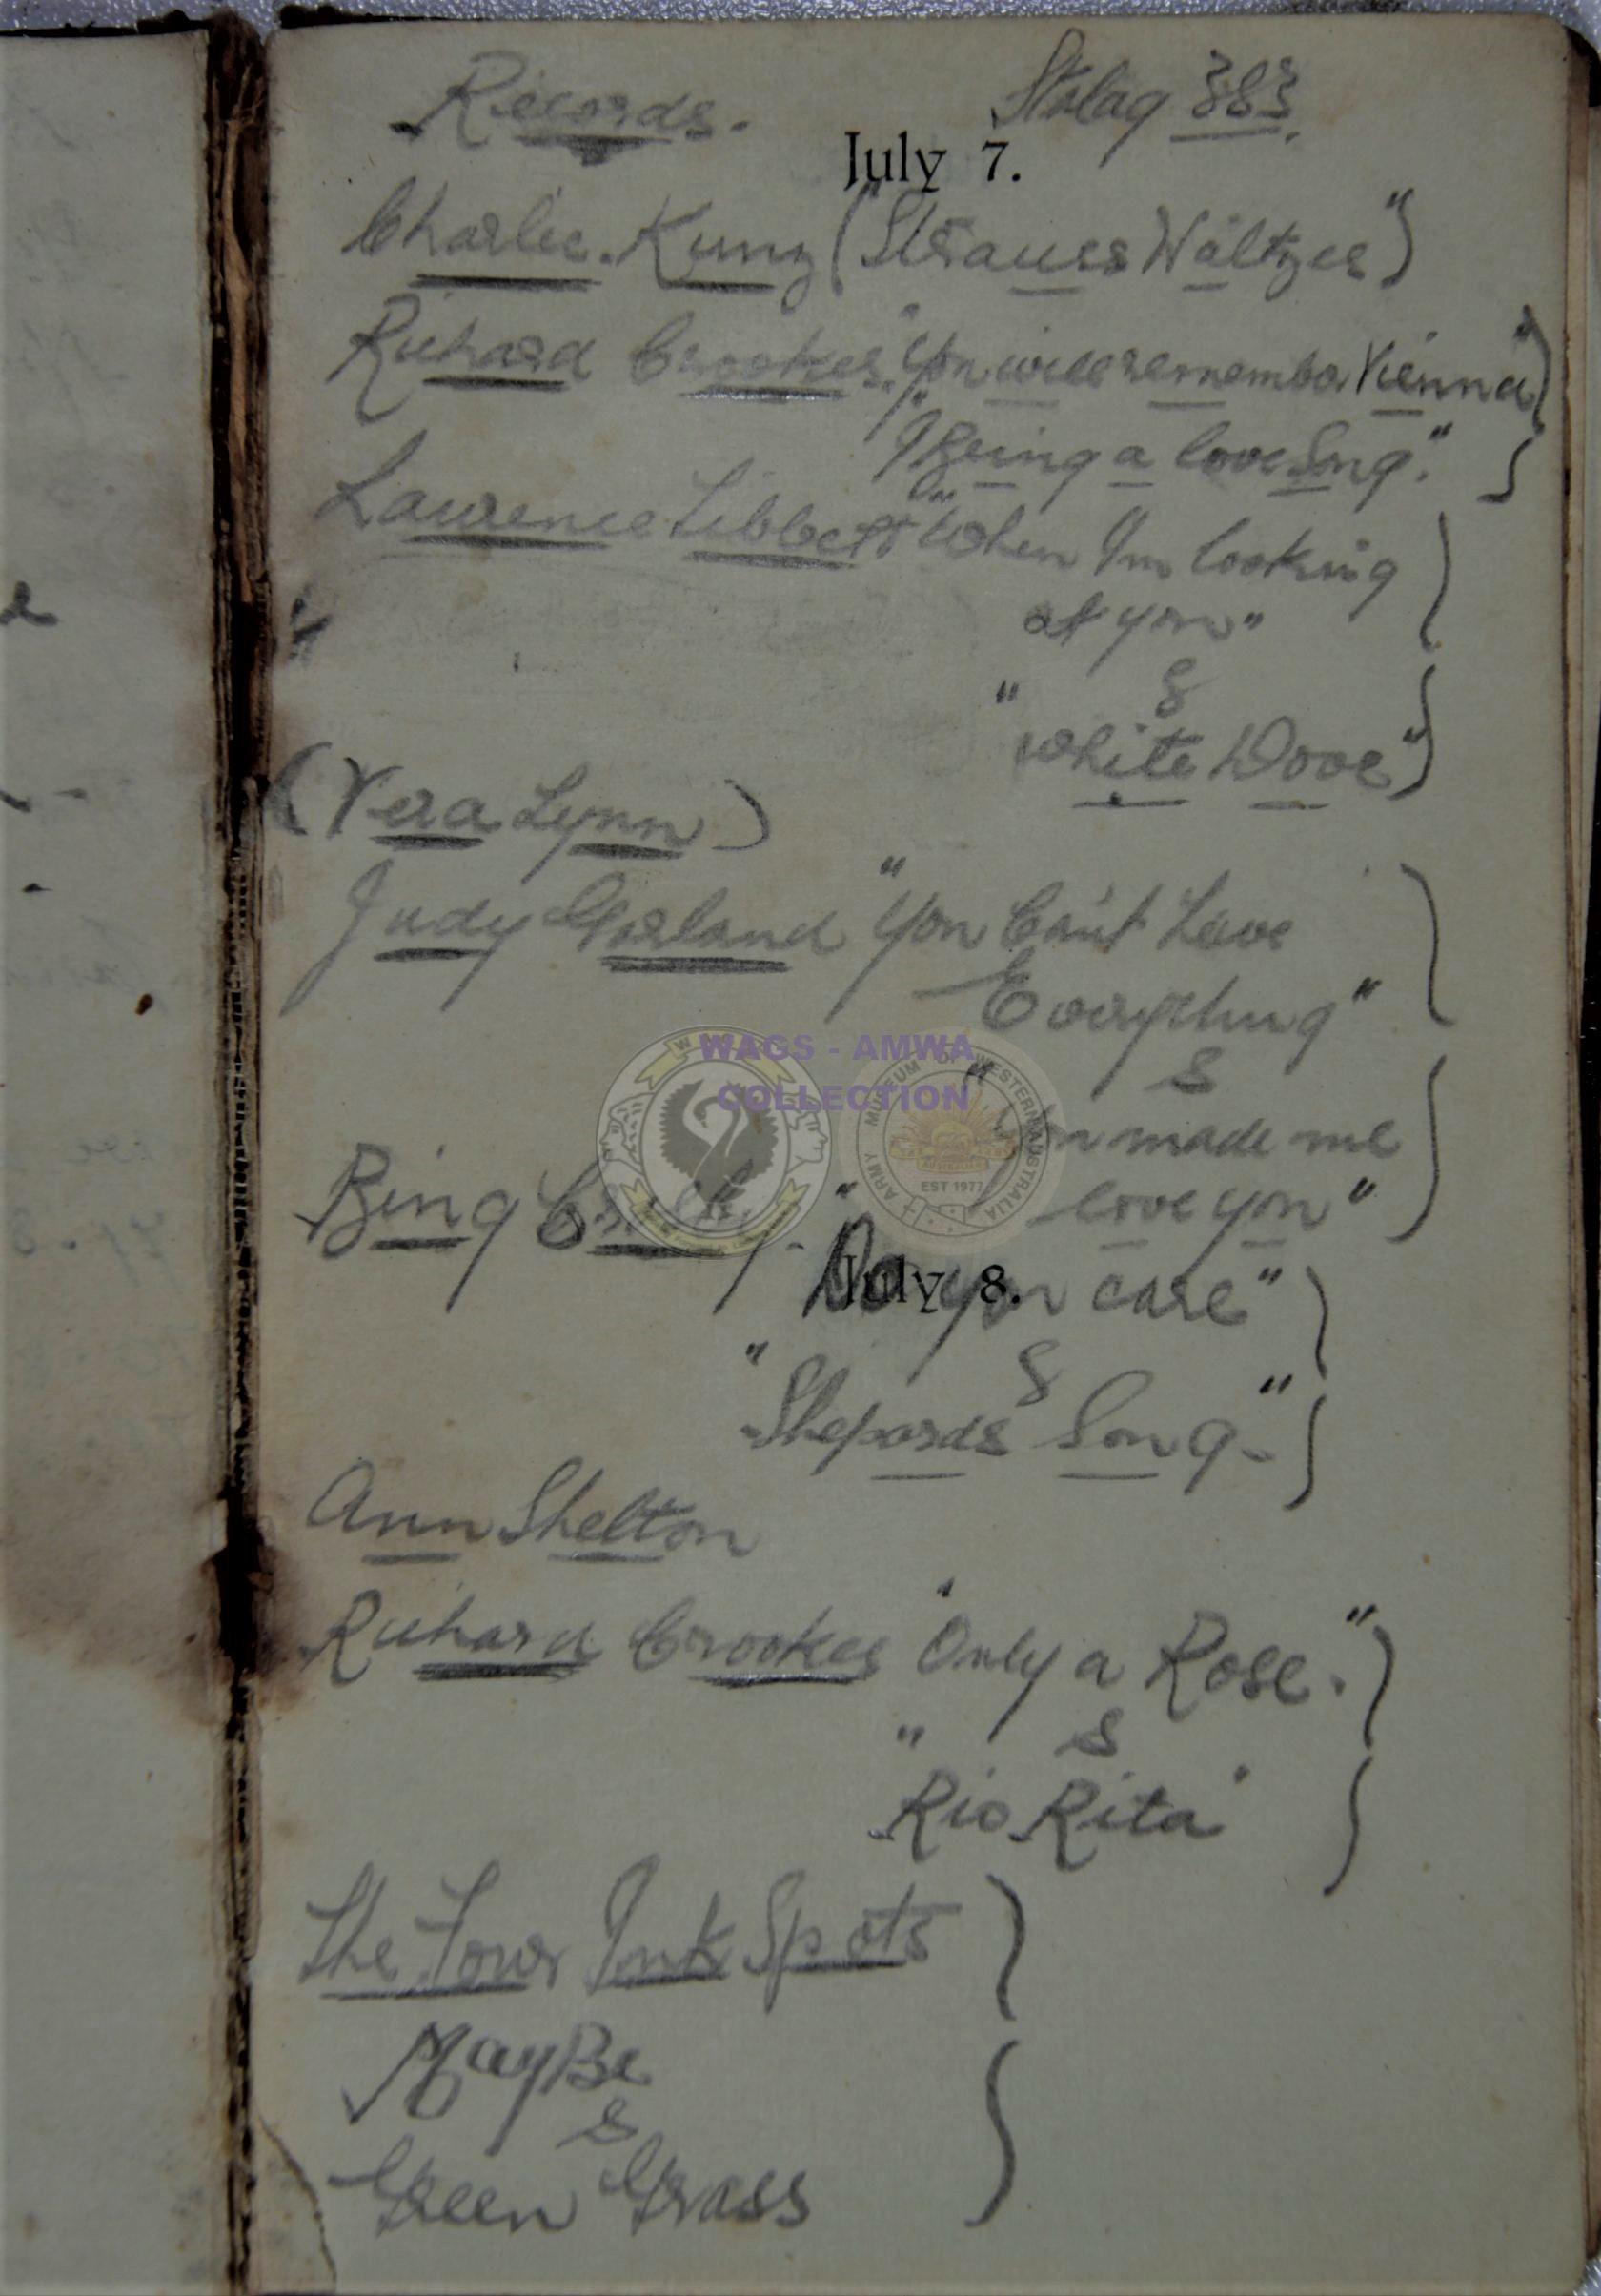 Records. Stalag 383.
July 7.
Charlie. Kunz ("Strauss Waltzes")
Richard Crookes. "You will remember Vienna")
"I Bring a love Song."
Laurence Tibbett "When I'm looking
at you"
&
"White Dove")
(Vera Lynn)
Judy Garland "You Can't Have
Everything"
&
"You made me
love you"
Bing Crosby. "Do you care"
July 8.
&
"Shepards Song-"
Ann Shelton
Richard Crookes "Only a Rose."
&
"Rio Rita"
The Four Ink Spots
MayBe
&
Green Grass
WAGS - AMWA
COLLECTION
ARMY MUSEUM OF WESTERN AUSTRALIA
EST 1977